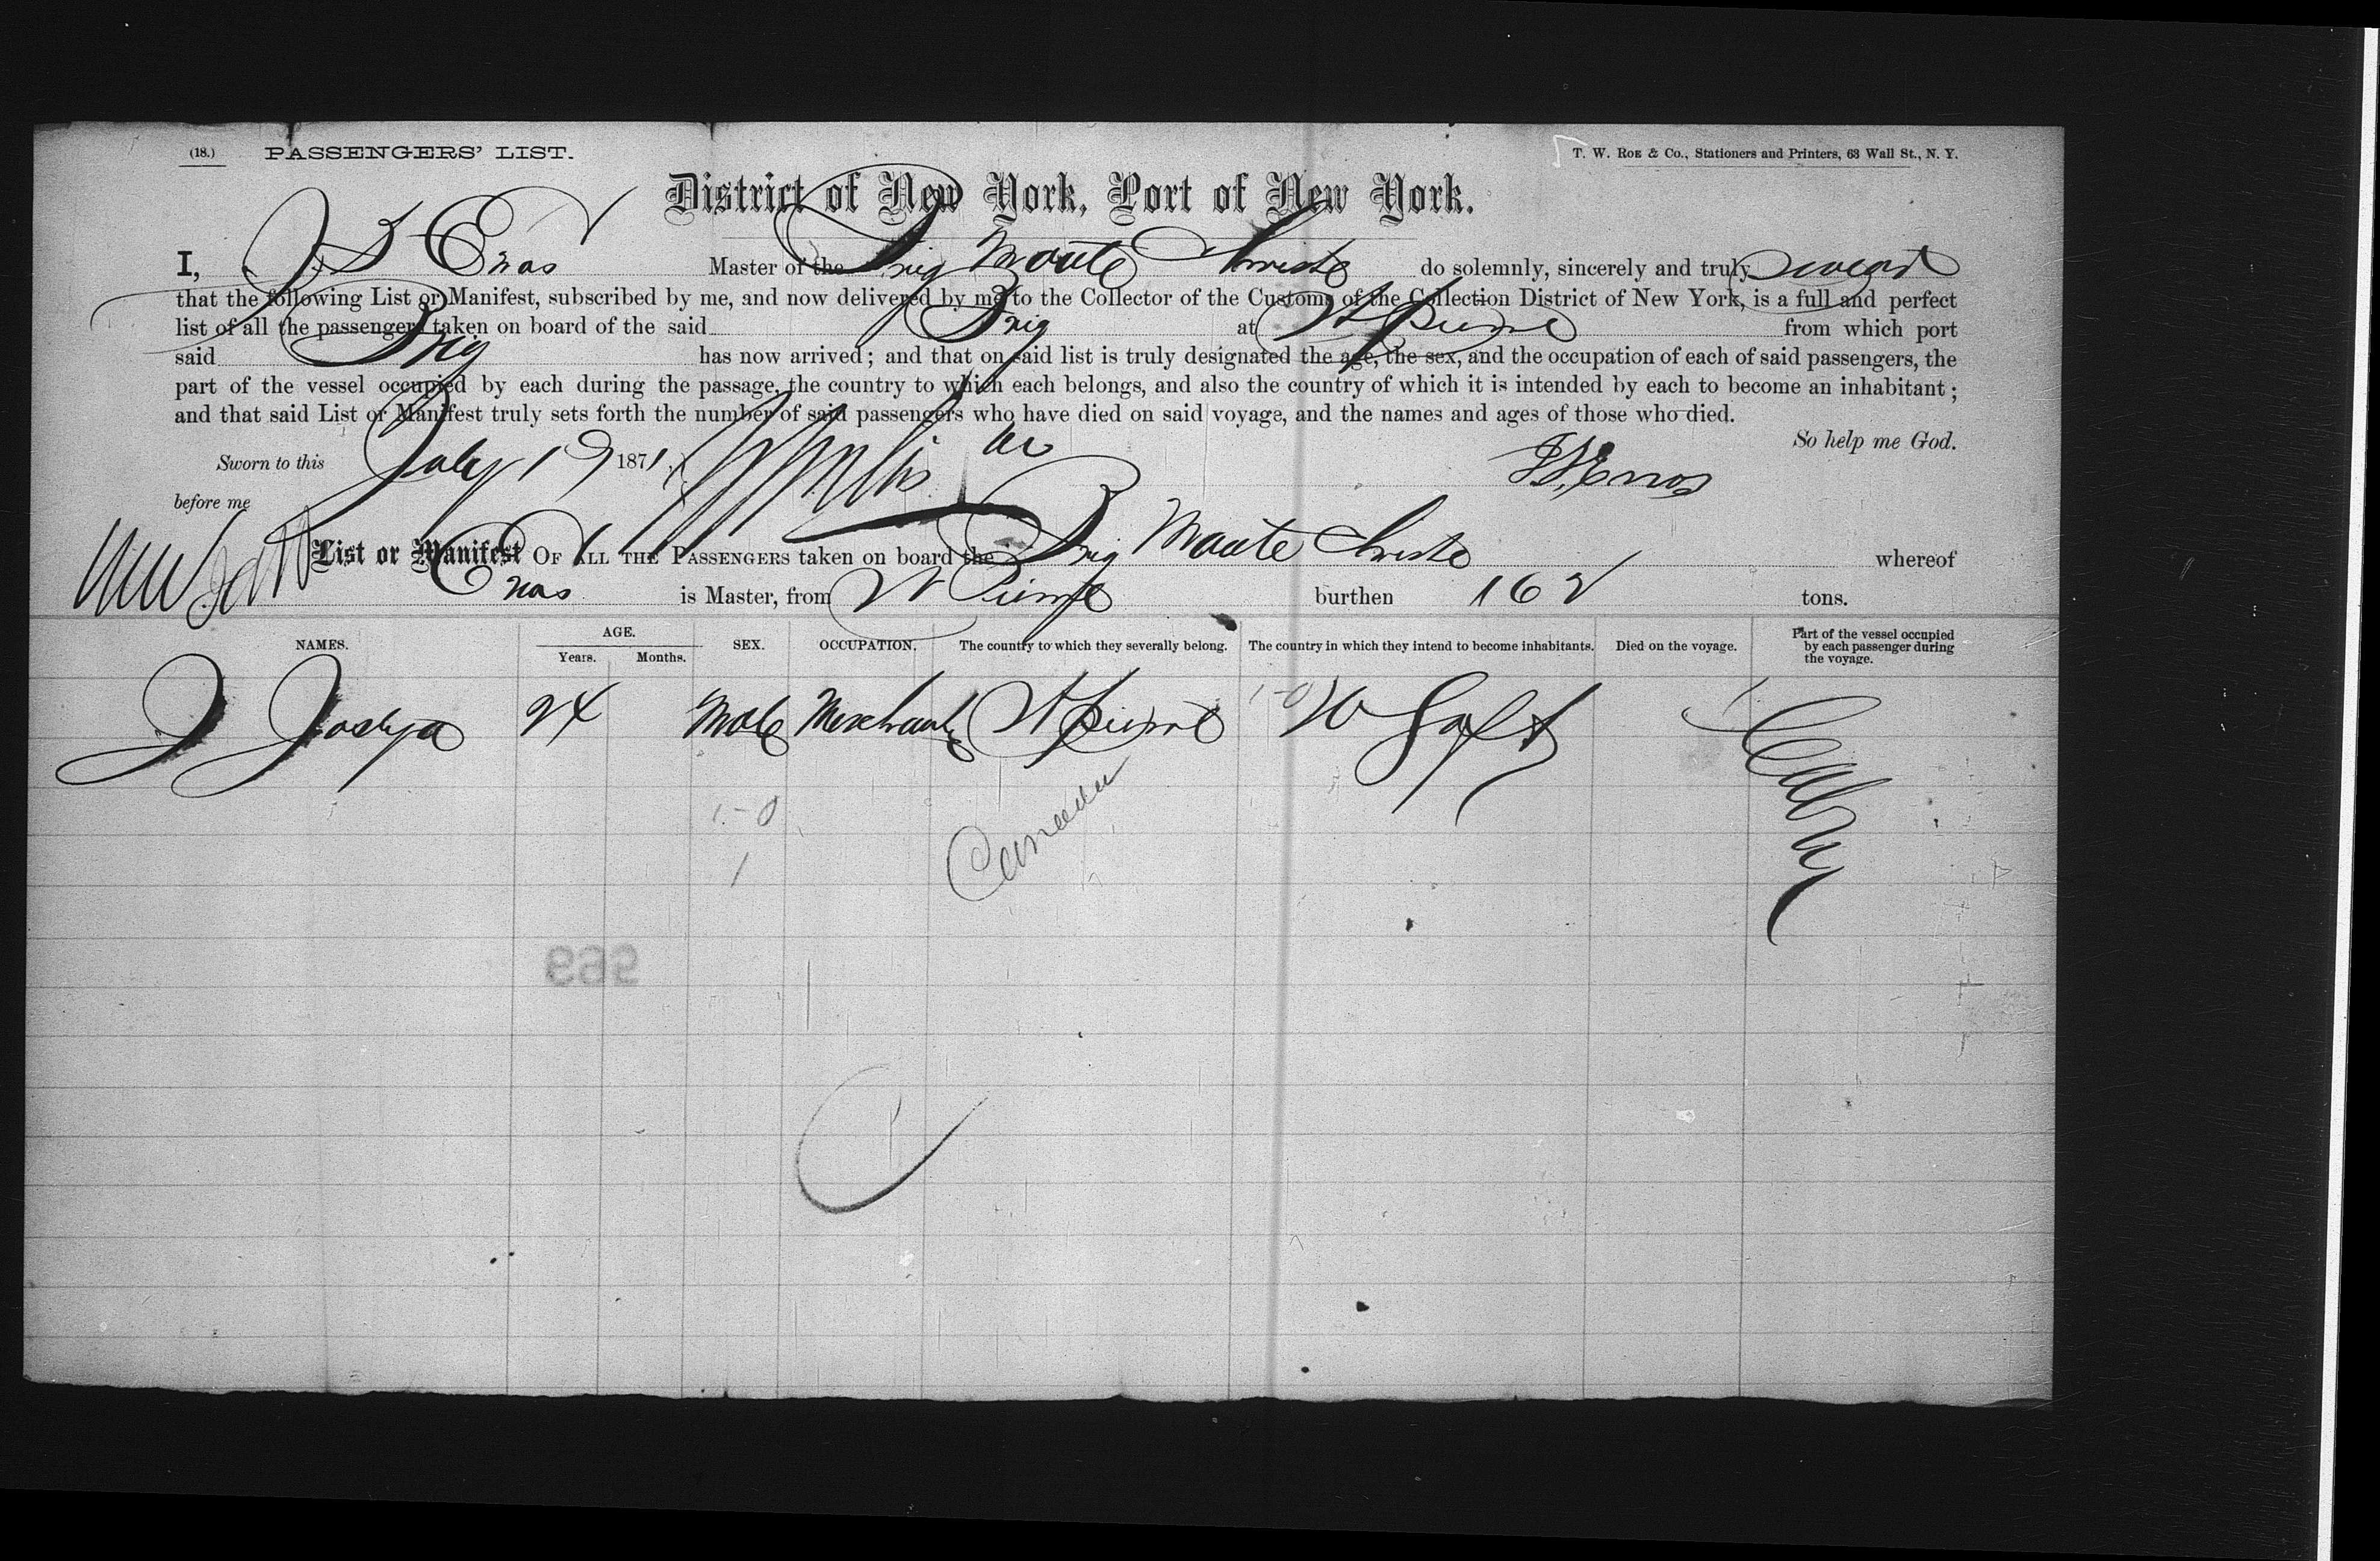 (18.) PASSENGERS' LIST.
T. W. ROE & Co., Stationers and Printers, 63 Wall St., N. Y.
District of New York, Port of New York.
I, J S Enos Master of the Brig Monte Christo do solemnly, sincerely and truly swear
that the following List or Manifest, subscribed by me, and now delivered by me to the Collector of the Customs of the Collection District of New York, is a full and perfect
list of all the passengers taken on board of the said Brig at St Pierre from which port
said Brig has now arrived; and that on said list is truly designated the age, the sex, and the occupation of each of said passengers, the
part of the vessel occupied by each during the passage, the country to which each belongs, and also the country of which it is intended by each to become an inhabitant;
and that said List or Manifest truly sets forth the number of said passengers who have died on said voyage, and the names and ages of those who died.
So help me God.
Sworn to this July 19 1871
J S Enos
before me
List or Manifest OF ALL THE PASSENGERS taken on board the Brig Monte Christo whereof
Enos is Master, from St Pierre burthen 162 tons.
NAMES. AGE. Years. Months. SEX. OCCUPATION. The country to which they severally belong. The country in which they intend to become inhabitants. Died on the voyage. Part of the vessel occupied by each passenger during the voyage.
J 24 Male Merchant St Pierre Cabin
1-0
1